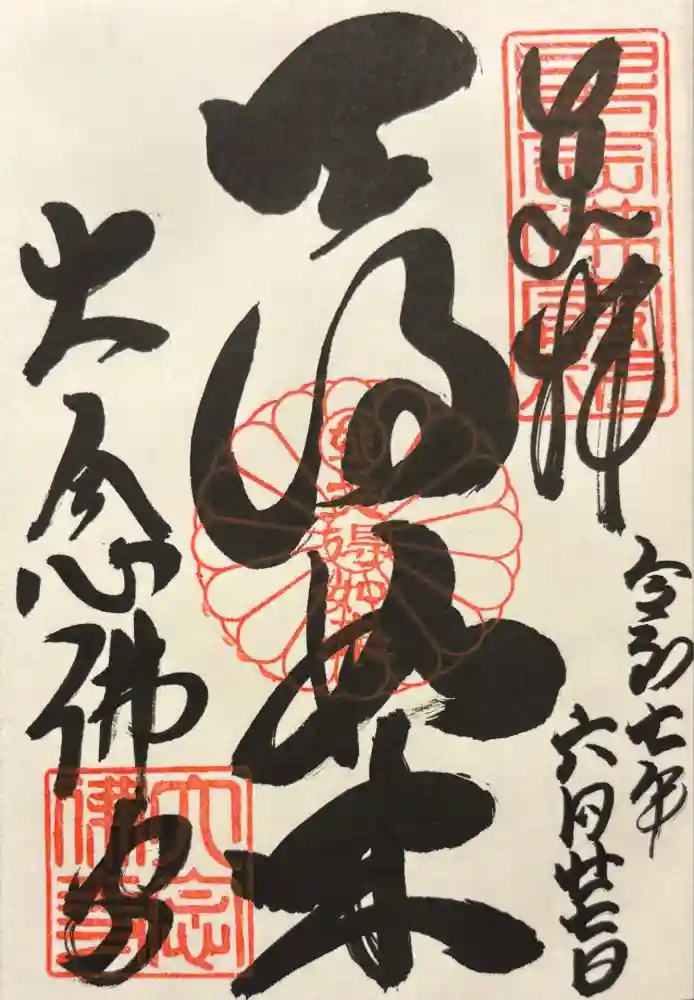 奉拝
令和七年
六月廿七日
天得如来
大念佛寺
大念
佛寺